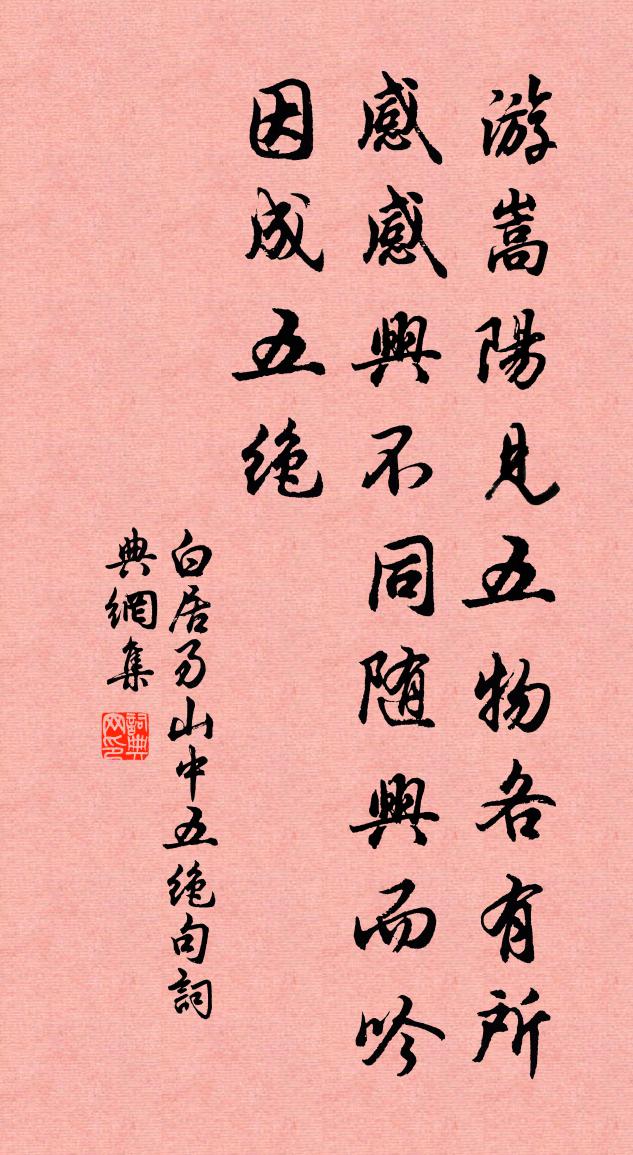 游嵩陽見五物各有所
感感興不同随興而吟
因成五绝
白居易山中五绝句詞
典網集
詞典网印